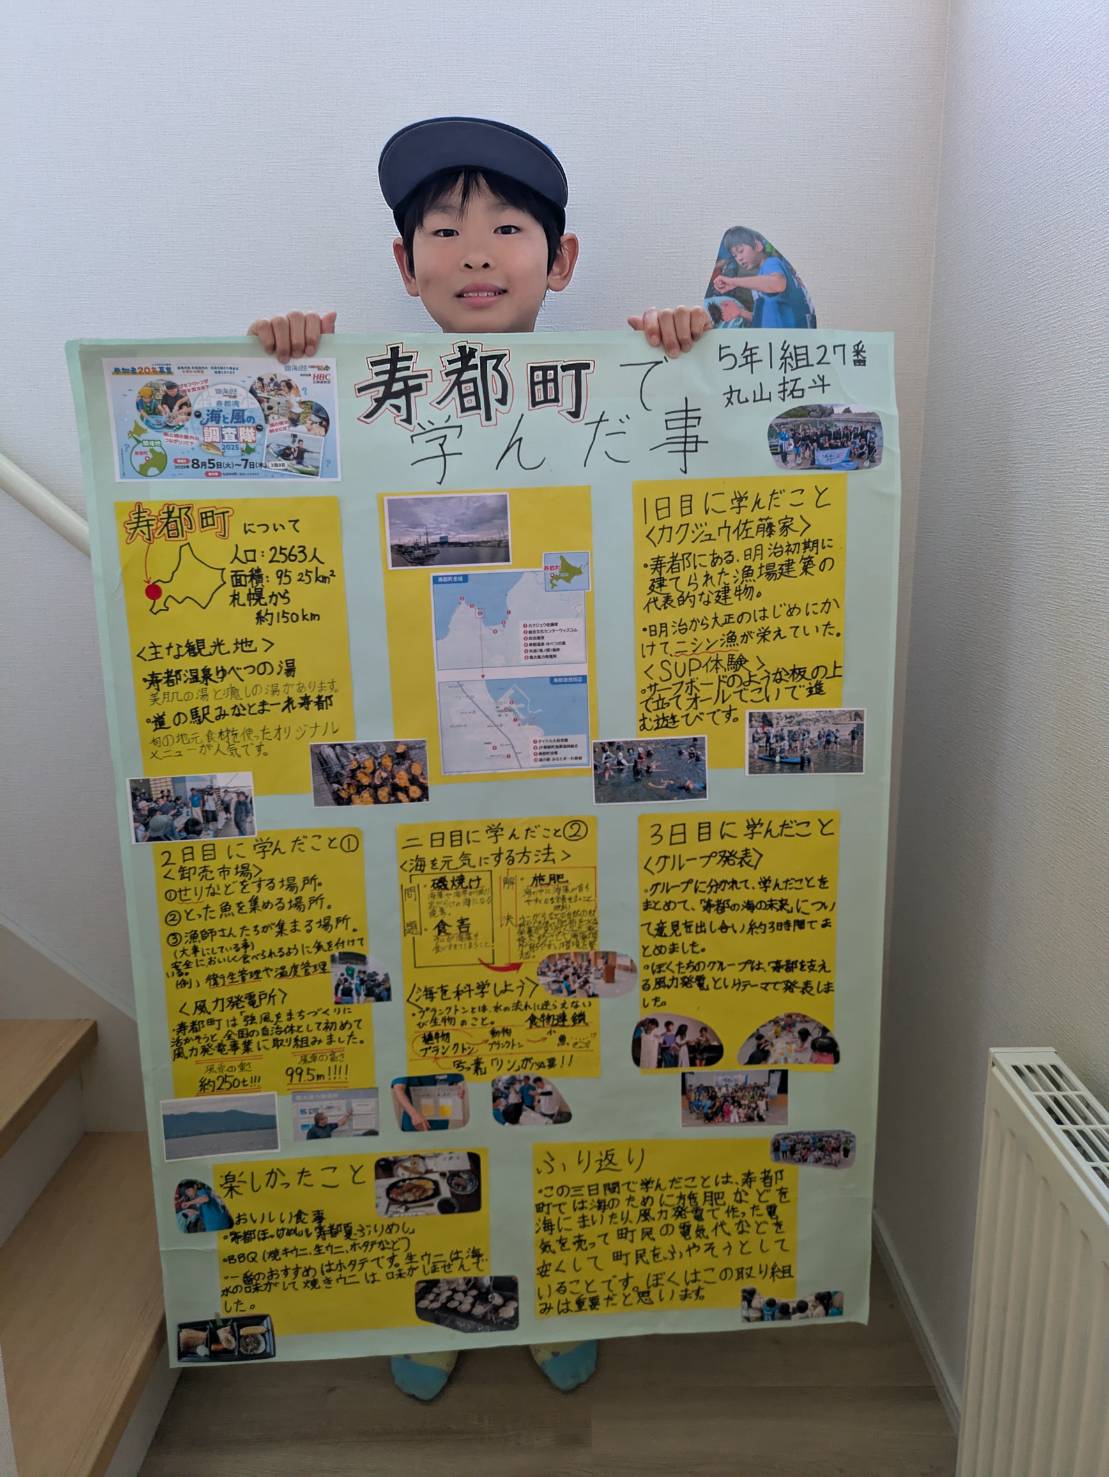 寿都町で
学んだ事
5年1組27番
丸山拓斗
20年夏
HBC
寿都湾
海と風の
調査隊
2025
8月5日(火)〜7日(木)
寿都町について
人口:2563人
面積:95.25km²
札幌から
約150km
<主な観光地>
・寿都温泉ゆべつの湯
美肌の湯と癒しの湯があります。
・道の駅みなとま〜れ寿都
旬の地元食材を使ったオリジナル
メニューが人気です。
1日目に学んだこと
<カクジュウ佐藤家>
・寿都にある、明治初期に
建てられた漁場建築の
代表的な建物。
・明治から大正のはじめにか
けてニシン漁が栄えていた。
<SUP体験>
・サーフボードのような板の上
で立てオールでこいで進
む遊びです。
2日目に学んだこと①
<卸売市場>
①せりなどをする場所。
②とった魚を集める場所。
③漁師さんたちが集まる場所。
(大事にしている事)
安全においしく食べられるように気を付けて
いる。
(例)衛生管理や温度管理
<風力発電所>
・寿都町は「強風をまちづくりに
活かそうと、全国の自治体として初めて
風力発電事業に取り組みました。
風車の重さ
約250t!!!
風車の高さ
99.5m!!!!
二日目に学んだこと②
<海を元気にする方法>
問題
・磯焼け
・食害
解決
・施肥
<海を科学しよう>
・プランクトンとは、水の流れに逆らえない
生物のこと。
食物連鎖
植物プランクトン→動物プランクトン→小魚
ちっ素「リン」が必要!!
3日目に学んだこと
<グループ発表>
・グループに分かれて、学んだことを
まとめて、「寿都の海の未来」につい
て意見を出し合い約3時間でま
とめました。
・ぼくたちのグループは、「寿都を支え
る風力発電」というテーマで発表しま
した。
楽しかったこと
おいしい食事
・寿都ほっけめしと寿都夏ぶりめし
・BBQ(焼キウニ、生ウニ、ホタテなど)
・一番のおすすめはホタテです。生ウニは海
水の味がして焼きウニは味がしませんで
した。
ふり返り
・この三日間で学んだことは、寿都
町では海のために施肥などを
海にまいたり、風力発電で作った電
気を売って町民の電気代などを
安くして町民をふやそうとして
いることです。ぼくはこの取り組
みは重要だと思います。